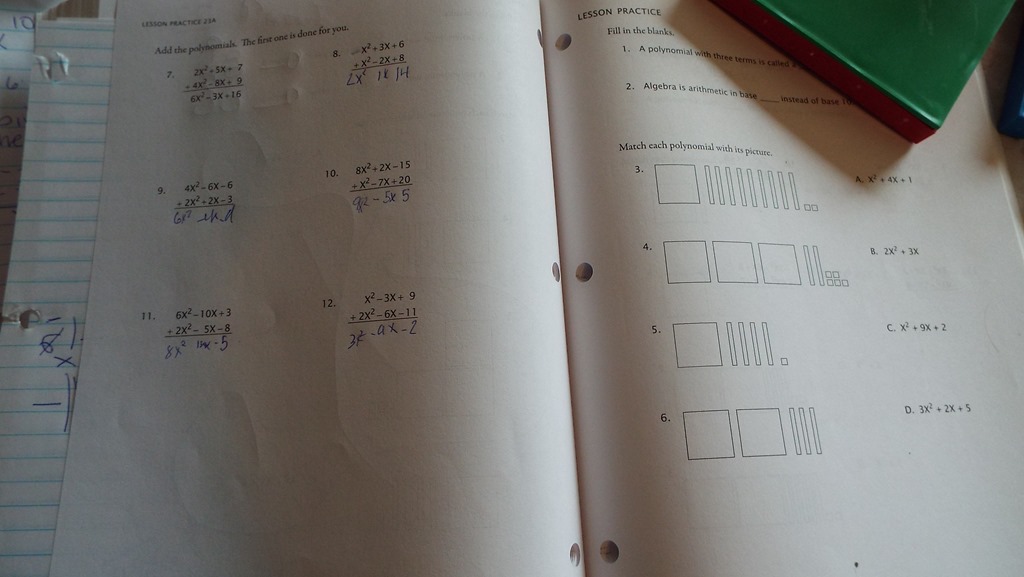 10
LESSON PRACTICE 23A
Add the polynomials. The first one is done for you.
7. 2X² - 5X + 7
+ 4X² - 8X + 9
6X² - 3X + 16
8. X² + 3X + 6
+ X² - 2X + 8
2x² 1x 14
9. 4X² - 6X - 6
+ 2X² + 2X - 3
6x²
10. 8X² + 2X - 15
+ X² - 7X + 20
9x² - 5x 5
11. 6X² - 10X + 3
+ 2X² - 5X - 8
8x² - 5
12. X² - 3X + 9
+ 2X² - 6X - 11
3x² - 9x - 2
LESSON PRACTICE
Fill in the blanks.
1. A polynomial with three terms is called a
2. Algebra is arithmetic in base ____ instead of base 10
Match each polynomial with its picture.
3.
A. X² + 4X + 1
4.
B. 2X² + 3X
5.
C. X² + 9X + 2
6.
D. 3X² + 2X + 5